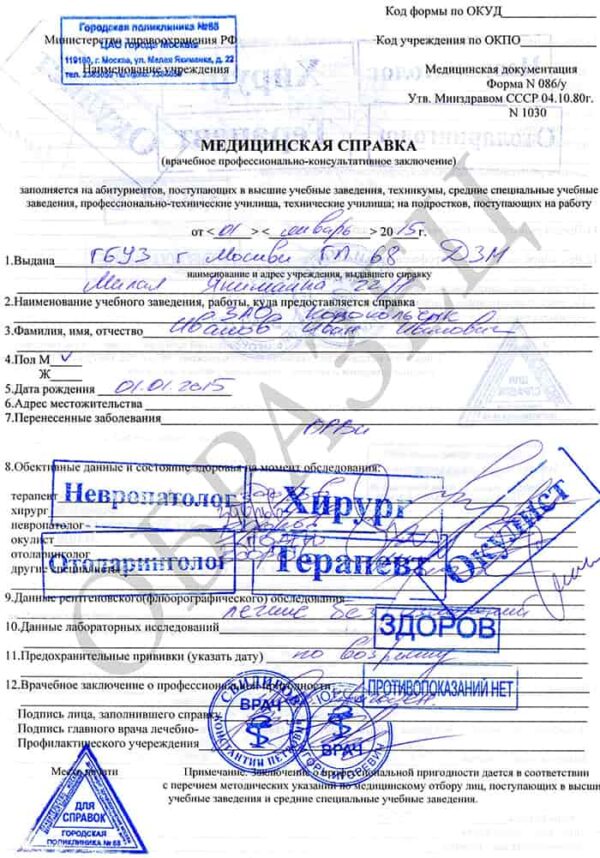 Код формы по ОКУД
Городская поликлиника №68
Министерство здравоохранения РФ
ЦАО города Москвы
Код учреждения по ОКПО
119180, г. Москва, ул. Малая Якиманка, д. 22
Наименование учреждения
Медицинская документация
Форма N 086/у
Утв. Минздравом СССР 04.10.80г.
N 1030
Хирург
МЕДИЦИНСКАЯ СПРАВКА
(врачебное профессионально-консультативное заключение)
заполняется на абитуриентов, поступающих в высшие учебные заведения, техникумы, средние специальные учебные
заведения, профессионально-технические училища, технические училища; на подростков, поступающих на работу
от < 01 > < январь > 2015г.
1.Выдана ГБУЗ г Москвы ГП 68 ДЗМ
наименование и адрес учреждения, выдавшего справку
Малая Якиманка 22/
2.Наименование учебного заведения, работы, куда предоставляется справка
ЗАО Колокольчик
3.Фамилия, имя, отчество Иванов Иван Иванович
4.Пол М
Ж
5.Дата рождения 01.01.2015
6.Адрес местожительства
7.Перенесенные заболевания
ОРВИ
8.Обективные данные и состояние здоровья на момент обследования:
терапевт
хирург
невропатолог
окулист
отоларинголог
другие специалисты
Невропатолог
Хирург
Окулист
Отоларинголог
Терапевт
9.Данные рентгеновского(флюорографического) обследования
легкие без
10.Данные лабораторных исследований
ЗДОРОВ
11.Предохранительные прививки (указать дату) по возрасту
12.Врачебное заключение о профессиональной пригодности
ПРОТИВОПОКАЗАНИЙ НЕТ
Подпись лица, заполнившего справку
Подпись главного врача лечебно-
Профилактического учереждения
СВИРИДОВ
КОНСТАНТИН ПЕТРОВИЧ
ВРАЧ
ВРАЧ
Место печати
Примечание. Заключение о профессиональной пригодности дается в соответствии
с перечнем методических указаний по медицинскому отбору лиц, поступающих в высши
учебные заведения и средние специальные учебные заведения.
ДЛЯ
СПРАВОК
ГОРОДСКАЯ
ПОЛИКЛИНИКА №68
ОБРАЗЕЦ